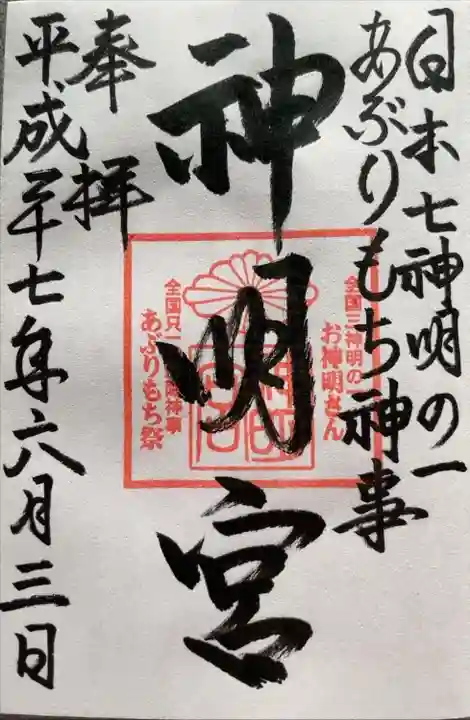 日本七神明の一
あぶりもち神事
神明宮
奉拝
平成二十七年六月三日
全国三神明の
お神明さん
全国只一
神事
あぶりもち祭